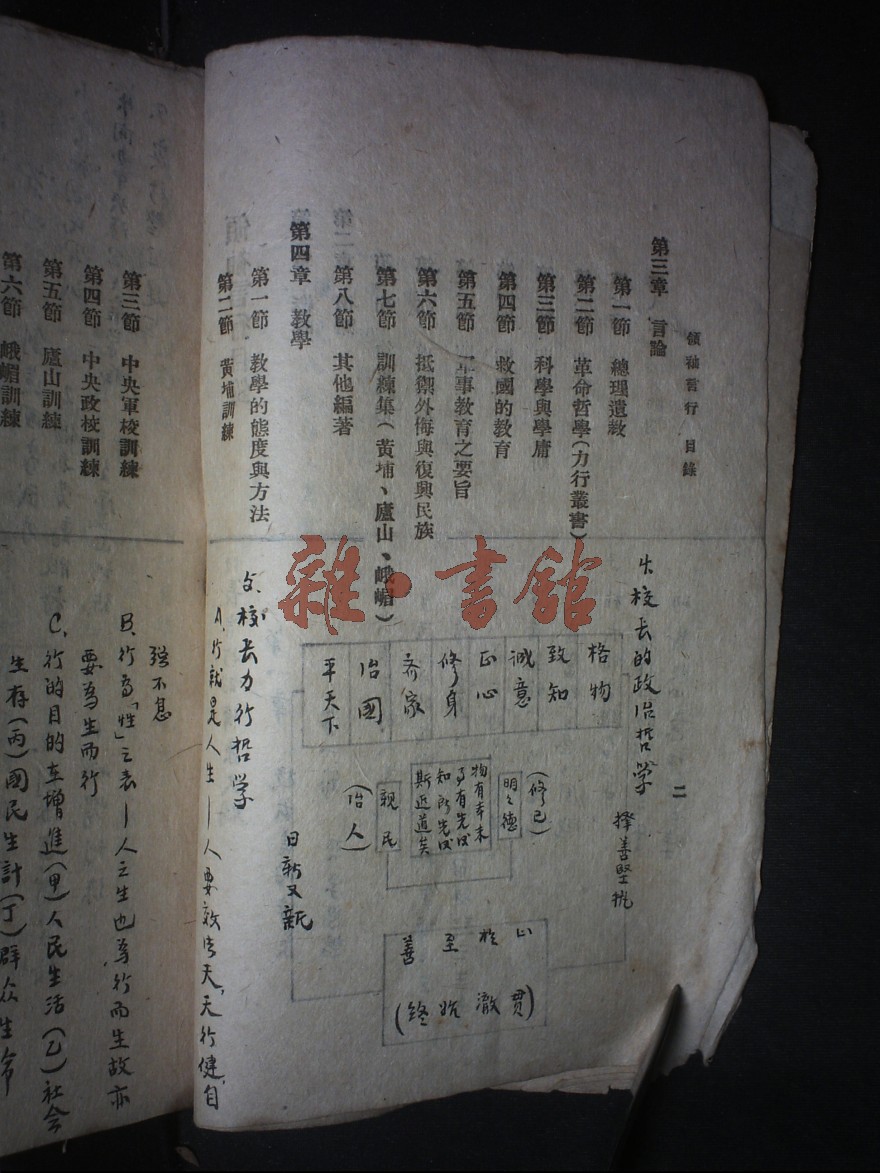 領袖言行 目錄
二
第三章 言論
第一節 總理遺教
第二節 革命哲學(力行叢書)
第三節 科學與學庸
第四節 救國的教育
第五節 軍事教育之要旨
第六節 抵禦外侮與復興民族
第七節 訓練集(黃埔、廬山、峨嵋)
第八節 其他編著
第四章 教學
第一節 教學的態度與方法
第二節 黃埔訓練
第三節 中央軍校訓練
第四節 中央政校訓練
第五節 廬山訓練
第六節 峨嵋訓練
校长的政治哲学
擇善堅执
格物
致知
诚意
正心
修身
齐家
治國
平天下
(修己)
明明德
物有本末
事有先后
知所先后
斯近道矣
親民
(治人)
日新又新
止於至善
(貫澈始終)
5.校长力行哲学
A.行就是人生—人要效法天,天行健,自
强不息
B.行為「性」之表—人之生也為行而生故亦
要為生而行
C.行的目的在增進(甲)人民生活(乙)社会
生存(丙)國民生計(丁)群众生命
雜·書館